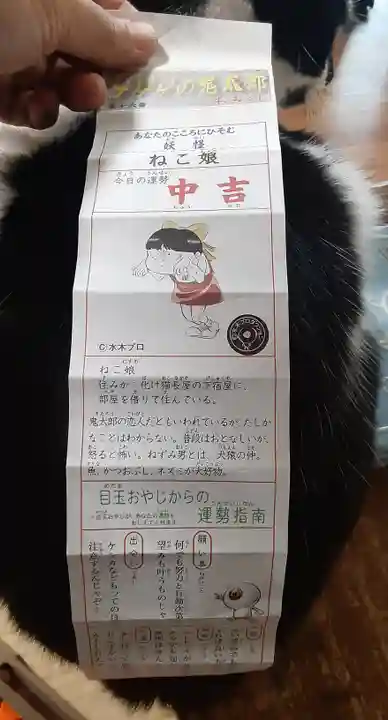 ゲゲゲの鬼太郎
おみくじ
あなたのこころにひそむ
妖怪
ねこ娘
今日の運勢
中吉
©水木プロ
ねこ娘
住みか 化け猫長屋の下宿屋に、
部屋を借りて住んでいる。
鬼太郎の恋人だともいわれているが、たしか
なことはわからない。普段はおとなしいが、
怒ると怖い。ねずみ男とは、犬猿の仲。
魚、かつおぶし、ネズミが大好物。
目玉おやじからの
運勢指南
願い事
何でも努力と行動次第
望みも叶うものじゃ
出会い
ケンカなどもっての外
注意するんじゃぞ